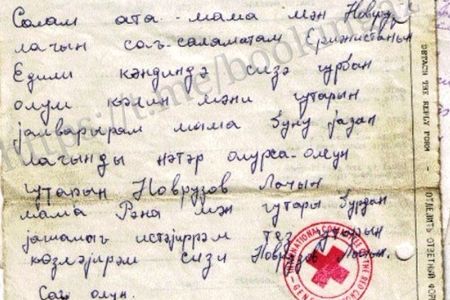 Салам ата-мама мән Новруз
лачын сағ-саламатам Ермәнистанын
Едили кәндиндә сизә гурбан
олум кәлин мәни гутарын
јалварырам мама буну јазан
лачынды нәтәр олурса-олсун
гутарын Новрузов Лачын
мама Рәна мән гутары бурдан
јашамағ истәјиррәм тез гутарын
көзләјирәм сизи Новрузов Лачын.
Сағ олун.
https://t.me/book
INTERNATIONAL COMMITTEE OF THE RED CR
GENEV
DETACH THE REPLY FORM — ОТДЕЛИТЬ ОТВЕТНЫЙ ФОР